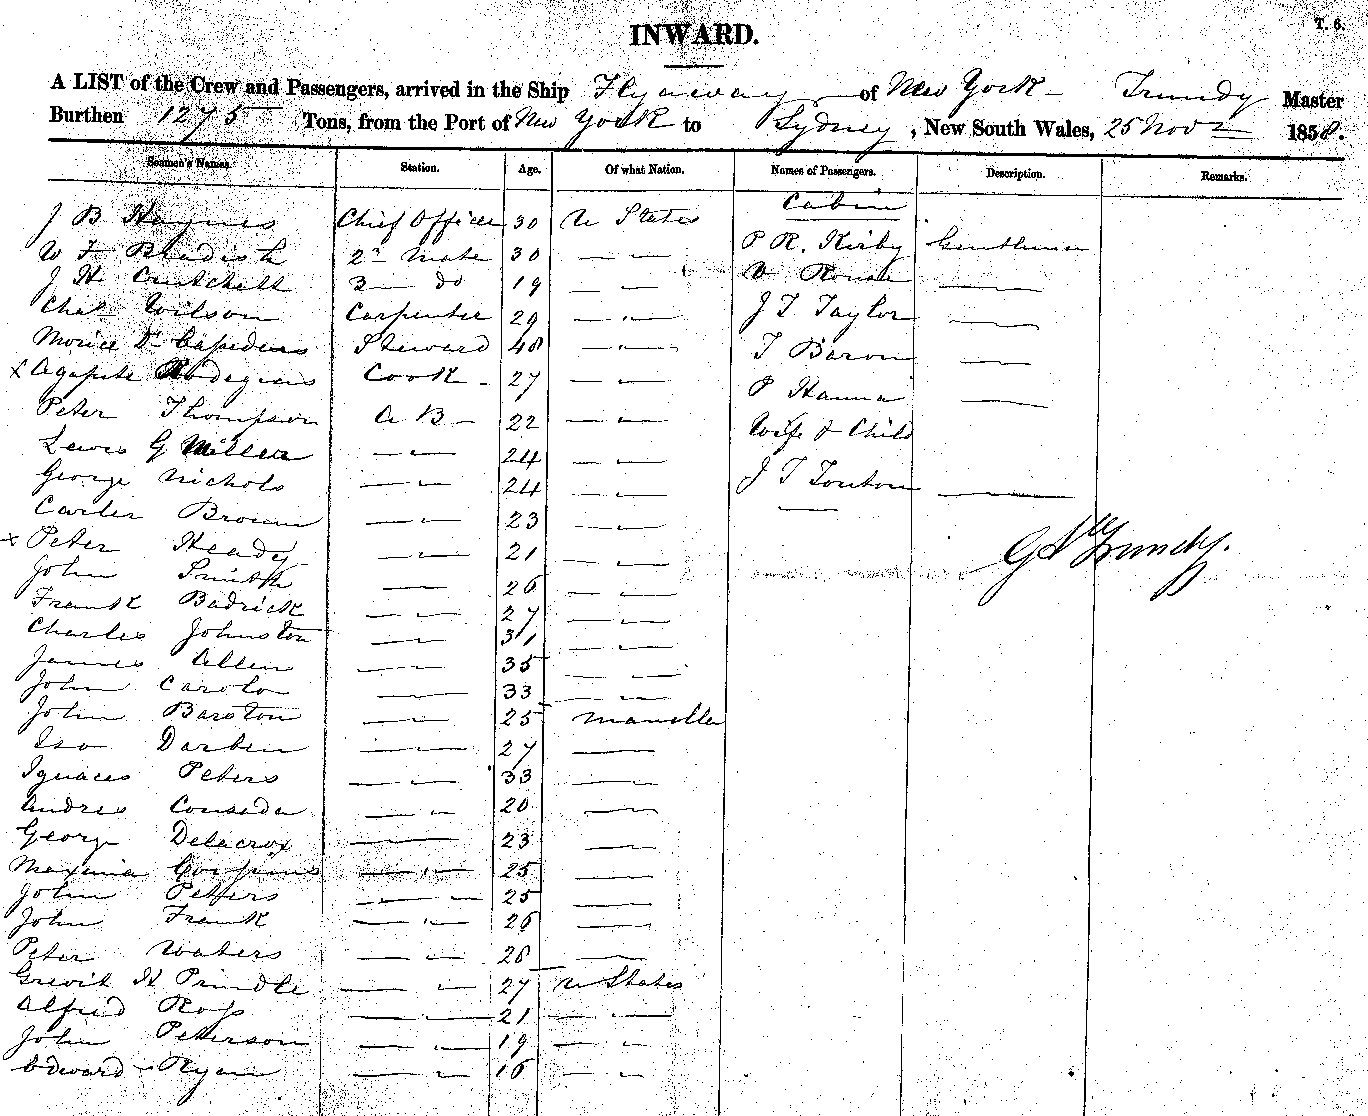 T. 6.
INWARD.
A LIST of the Crew and Passengers, arrived in the Ship Flyaway of New York Trundy Master
Burthen 1275 Tons, from the Port of New York to Sydney, New South Wales, 25 Nov 1858.
Seamen's Names. Station. Age. Of what Nation. Names of Passengers. Description. Remarks.
Cabin
J B Haynes Chief Officer 30 U States
P R. Kirby Gentleman
W F 2d Mate 30 — —
J H Crutchett 3 — do 19 — —
Rouse —
Chas Wilson Carpenter 29 — " —
J T Taylor —
Morice Steward 48 — " —
T Baron —
x Agapite Cook 27 — —
P Hanna —
Peter Thompson A B 22 — —
Wife & Child
Lewis G Miller — " — 24 — " —
George Nichols — " — 24 — " —
J T —
Carler Brown — " — 23 — " —
x Peter Heady — " — 21 — " —
G Trundy.
John Smith — 26 — " —
Frank Badrick — " — 27 — " —
Charles Johnston — " — 31 — " —
James Allen — " — 35 — " —
John Carolo — 33 — " —
John Barston — " — 25 Manilla
Darbin — 27 —
Ignaces Peters — " — 33 —
Andres — " — 20 —
George Delacrox — 23 —
— " — 25 —
John Peters — " — 25 —
John Frank — " — 26 —
Peter Waters — " — 28 —
H Prindle — " — 27 U States
Alfred Ross — " — 21 — " —
John Peterson — " — 19 — " —
Edward Ryan — " — 16 — " —